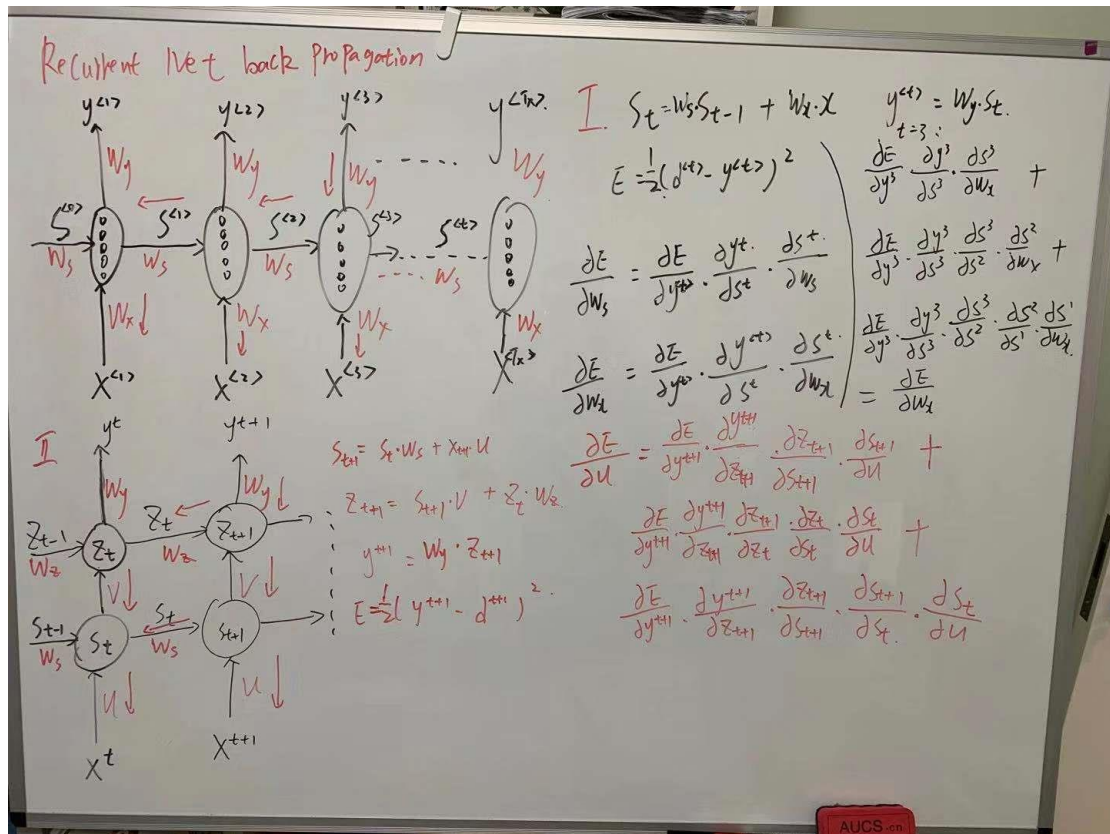 Recurrent Net back propagation
y<1> y<2> y<3> y<Tx>
Wy Wy Wy Wy
S<0> S<1> S<2> S<3> S<t>
Ws Ws Ws Ws
Wx Wx Wx Wx
X<1> X<2> X<3> X<Tx>
I. St = Ws·St-1 + Wx·X y<t> = Wy·St.
t=3:
E = 1/2 (d<t> - y<t>)²
∂E/∂Ws = ∂E/∂y<t> · ∂yt/∂st · ∂st/∂Ws
∂E/∂Wx = ∂E/∂y<t> · ∂y<t>/∂st · ∂st/∂Wx
∂E/∂y3 · ∂y3/∂s3 · ∂s3/∂Wx +
∂E/∂y3 · ∂y3/∂s3 · ∂s3/∂s2 · ∂s2/∂Wx +
∂E/∂y3 · ∂y3/∂s3 · ∂s3/∂s2 · ∂s2/∂s1 · ∂s1/∂Wx
= ∂E/∂Wx
II
yt yt+1
Wy Wy
Zt-1 Zt Zt Zt+1
Wz Wz
V V
St-1 St St St+1
Ws Ws
U U
Xt Xt+1
St+1 = St·Ws + Xt+1·U
Zt+1 = St+1·V + Zt·Wz
yt+1 = Wy·Zt+1
E = 1/2 (yt+1 - dt+1)²
∂E/∂U = ∂E/∂yt+1 · ∂yt+1/∂Zt+1 · ∂Zt+1/∂St+1 · ∂St+1/∂U +
∂E/∂yt+1 · ∂yt+1/∂Zt+1 · ∂Zt+1/∂Zt · ∂Zt/∂St · ∂St/∂U +
∂E/∂yt+1 · ∂yt+1/∂Zt+1 · ∂Zt+1/∂St+1 · ∂St+1/∂St · ∂St/∂U
AUCS.cn